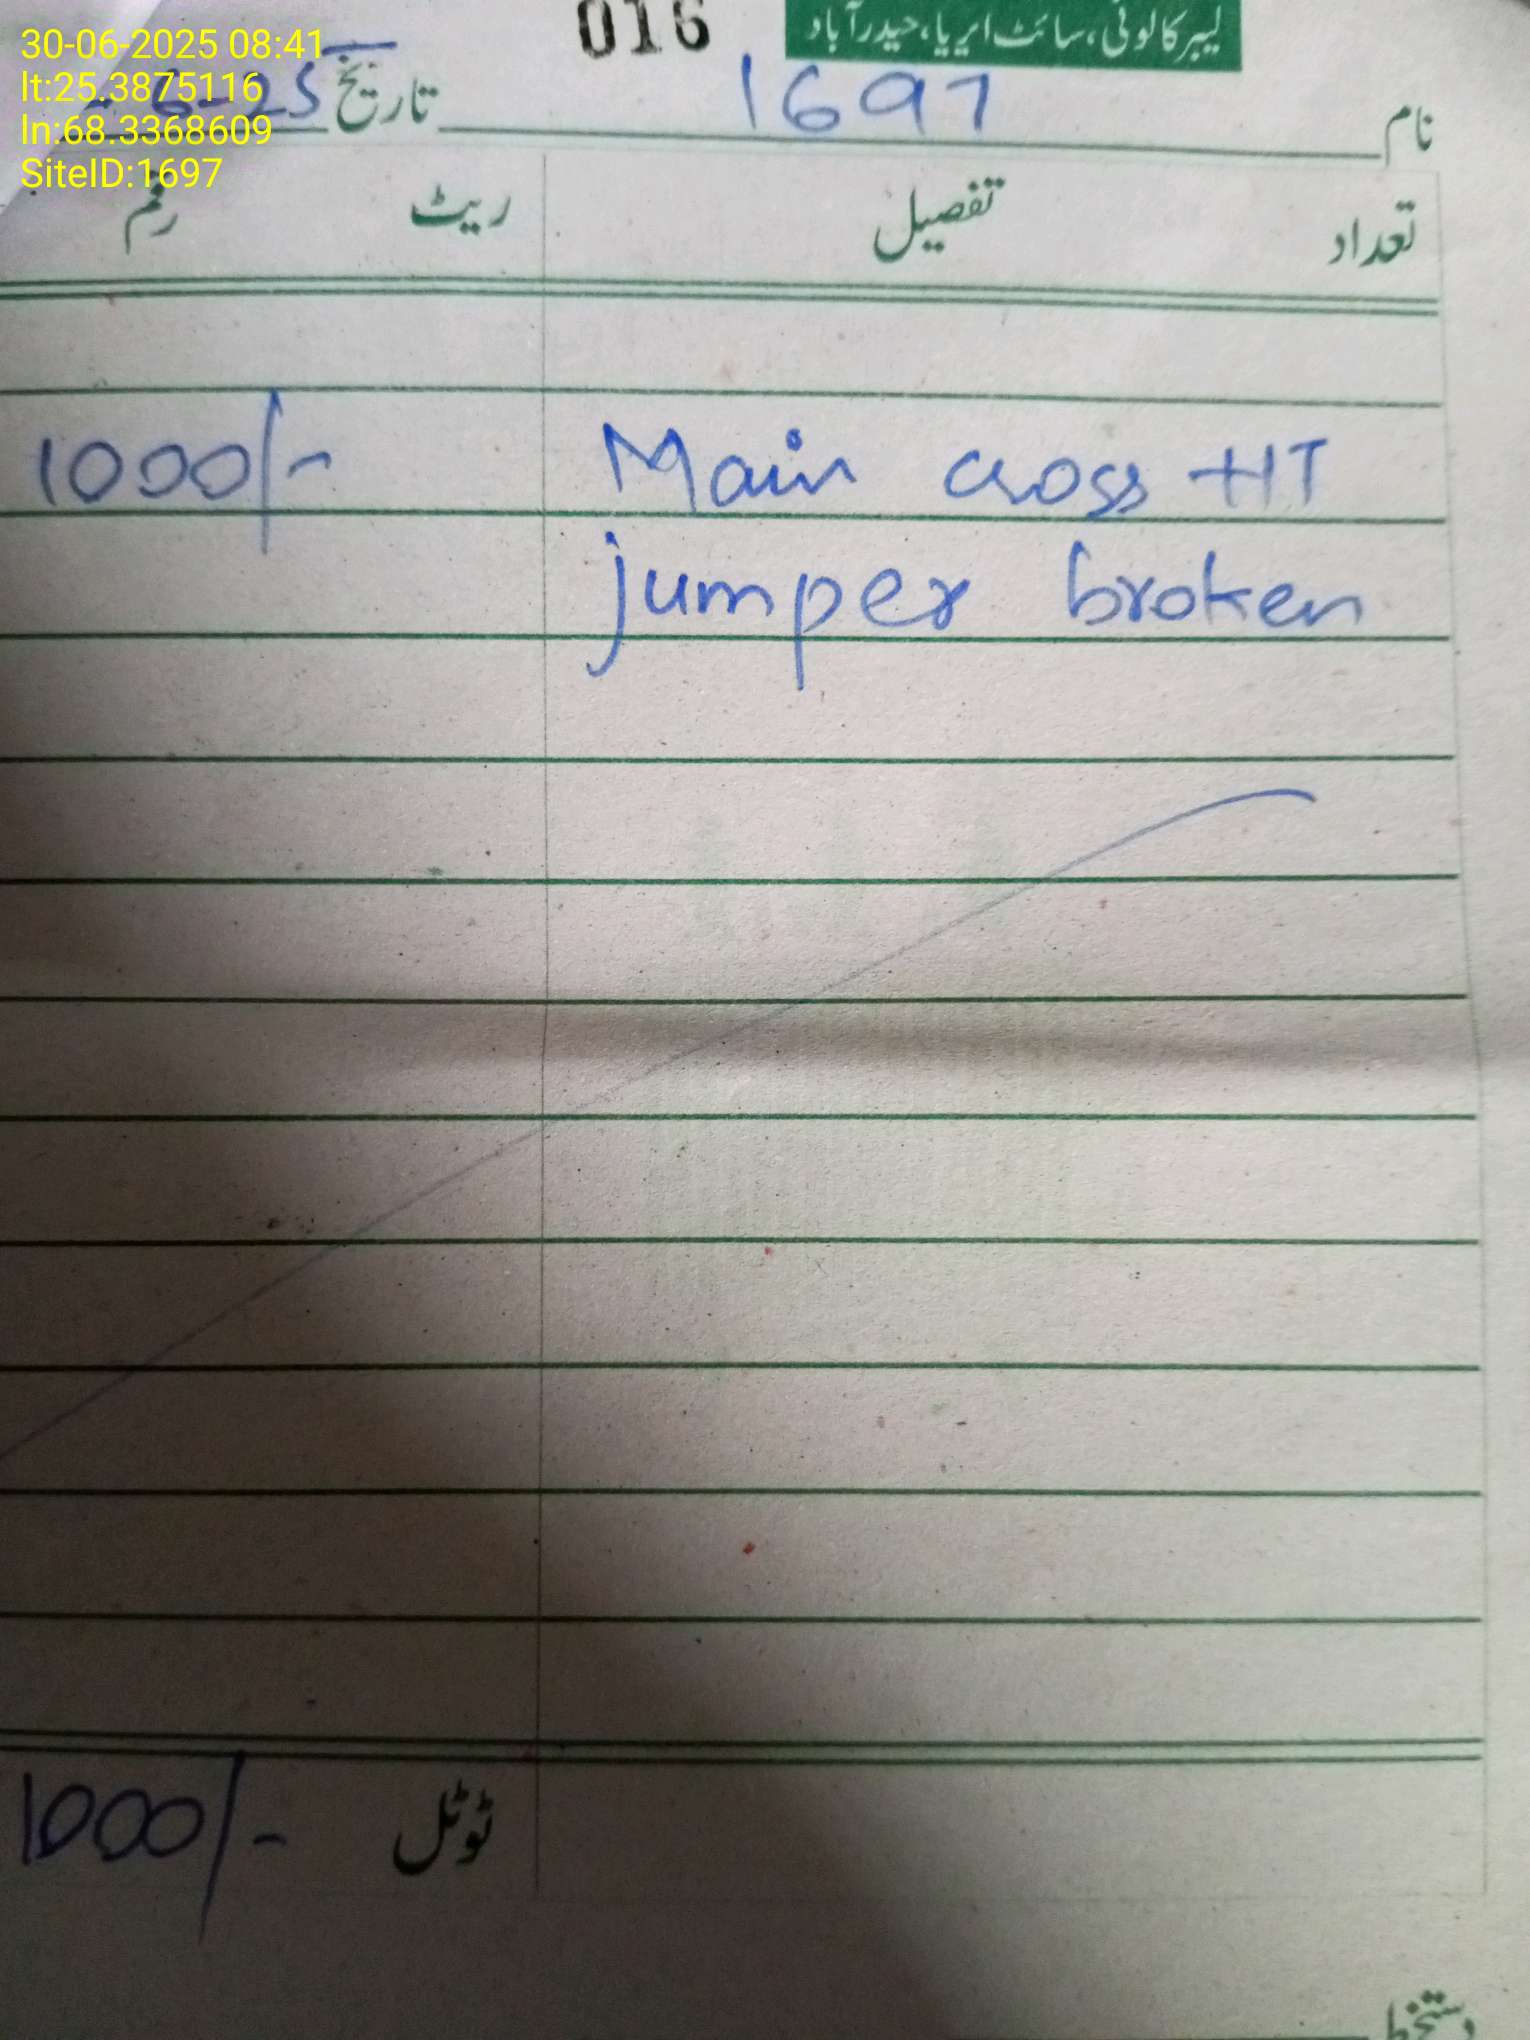 30-06-2025 08:41
lt:25.3875116
ln:68.3368609
SiteID:1697
016
لیبر کالونی، سائٹ ایریا، حیدرآباد
نام 1697
تاریخ -6-25
تعداد تفصیل ریٹ رقم
Main cross HT 1000/-
jumper broken
ٹوٹل 1000/-
دستخط